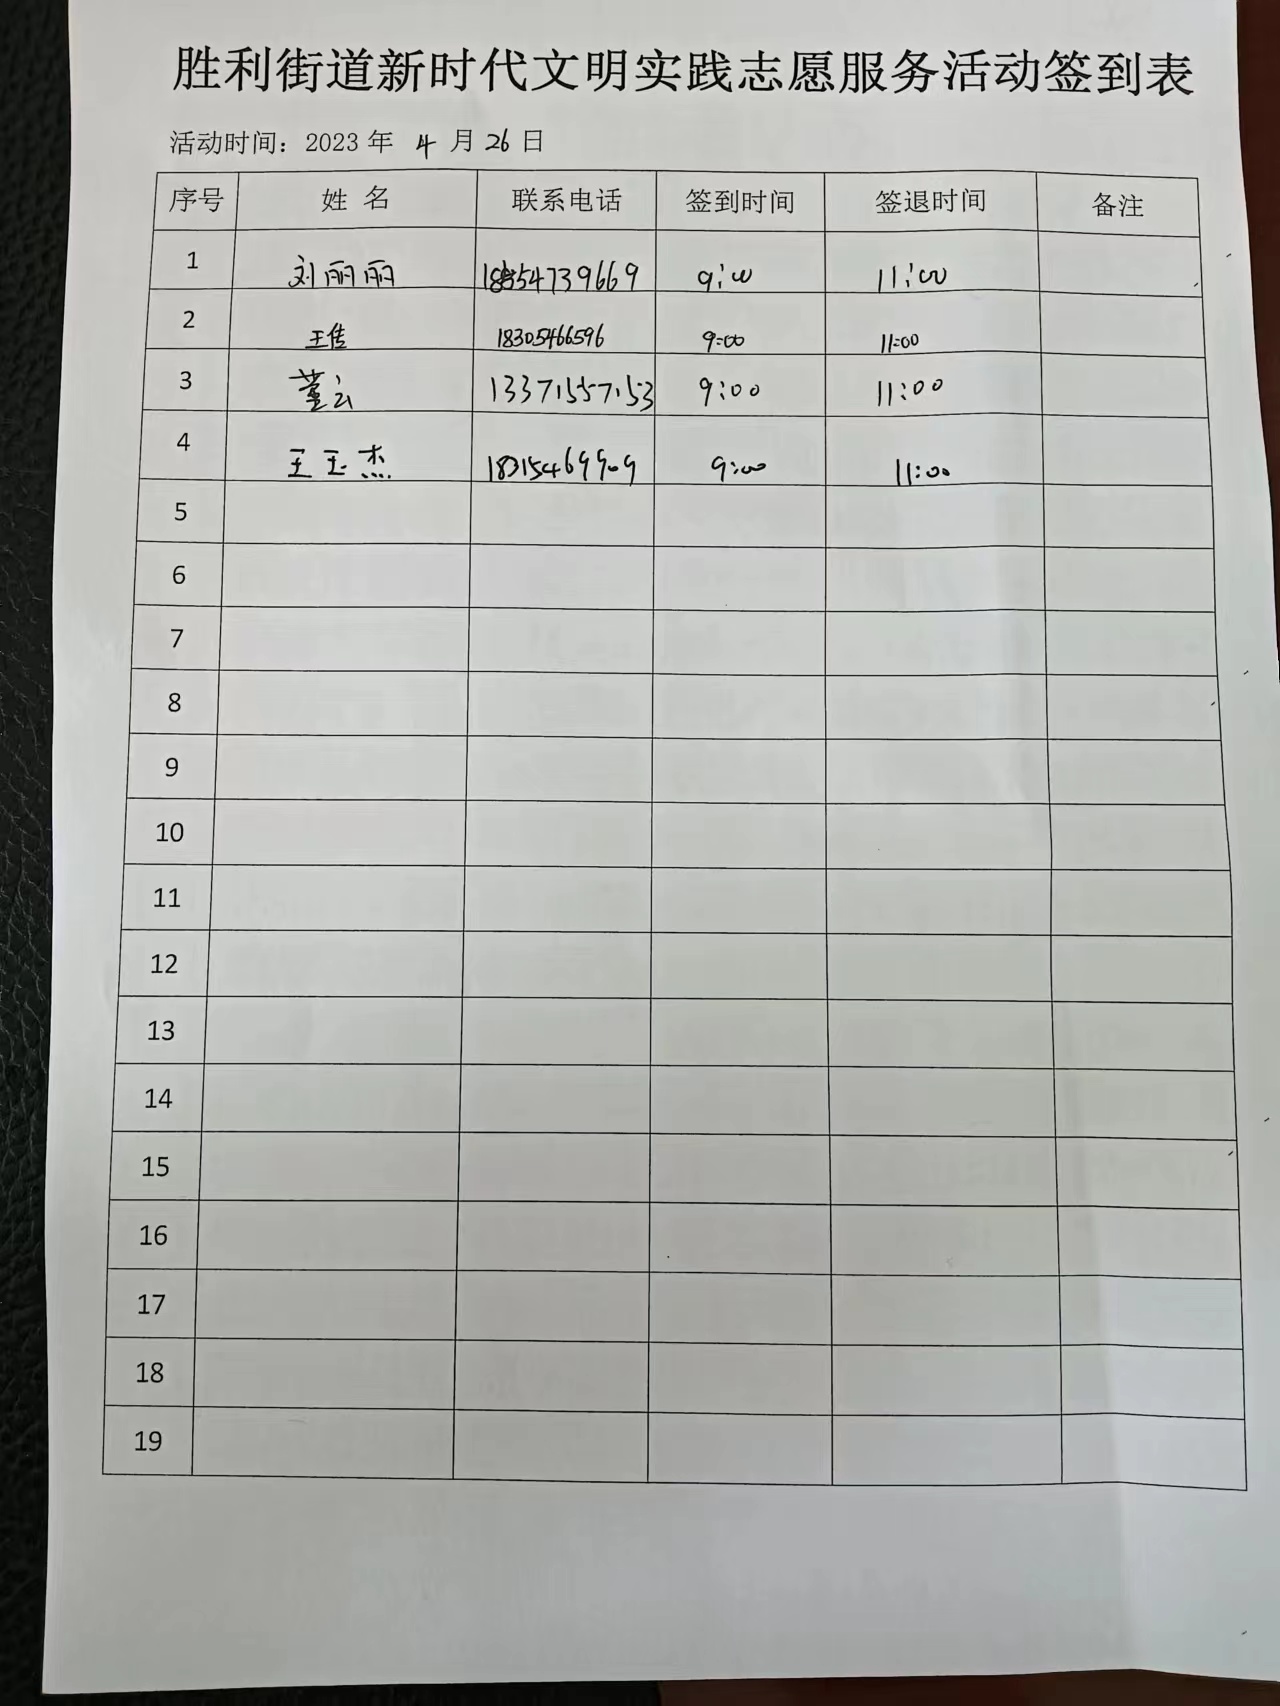 胜利街道新时代文明实践志愿服务活动签到表
活动时间：2023 年 4 月 26 日
序号 姓 名 联系电话 签到时间 签退时间 备注
1 刘丽丽 9:00 11:00
2 王佳 18305466596 9:00 11:00
3 董云 13371557153 9:00 11:00
4 王玉杰 18315469909 9:00 11:00
5
6
7
8
9
10
11
12
13
14
15
16
17
18
19